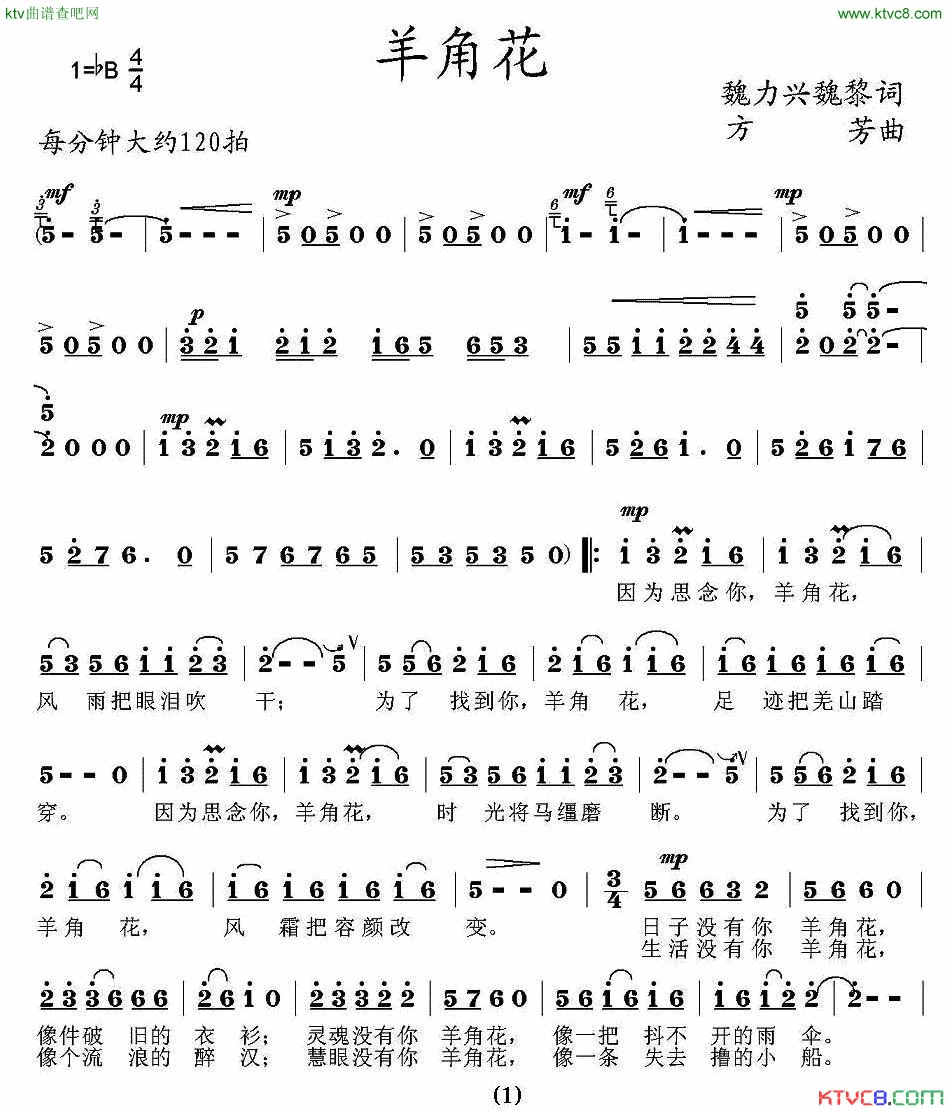 ktv曲谱查吧网
www.ktvc8.com
羊角花
1=♭B 4/4
魏力兴魏黎词
方 芳曲
每分钟大约120拍
mf mp mf mp
(5 - 5 - | 5 - - - | 5 0 5 0 0 | 5 0 5 0 0 | i - i - | i - - - | 5 0 5 0 0 |
p
5 0 5 0 0 | 3 2 i 2 i 2 i 6 5 6 5 3 | 5 5 i i 2 2 4 4 | 2 0 2 2 - |
5 5 5 -
5
mp
2 0 0 0 | i 3 2 i 6 | 5 i 3 2 . 0 | i 3 2 i 6 | 5 2 6 i . 0 | 5 2 6 i 7 6 |
mp
5 2 7 6 . 0 | 5 7 6 7 6 5 | 5 3 5 3 5 0) ‖: i 3 2 i 6 | i 3 2 i 6 |
因为思念你，羊角花，
5 3 5 6 i i 2 3 | 2 - - 5 | 5 5 6 2 i 6 | 2 i 6 i i 6 | i 6 i 6 i 6 i 6 |
风 雨把眼泪吹 干； 为了 找到你，羊角 花， 足 迹把羌山踏
5 - - 0 | i 3 2 i 6 | i 3 2 i 6 | 5 3 5 6 i i 2 3 | 2 - - 5 | 5 5 6 2 i 6 |
穿。 因为思念你，羊角花， 时 光将马缰磨 断。 为了 找到你，
mp
2 i 6 i i 6 | i 6 i 6 i 6 i 6 | 5 - - 0 | 3/4 5 6 6 3 2 | 5 6 6 0 |
羊角 花， 风 霜把容颜改 变。 日子没有你 羊角花，
生活没有你 羊角花，
2 3 3 6 6 6 | 2 6 i 0 | 2 3 3 2 2 | 5 7 6 0 | 5 6 i 6 i 6 | i 6 i 2 i | 2 - - |
像件破 旧的 衣 衫； 灵魂没有你 羊角花， 像一把 抖不 开的雨 伞。
像个流 浪的 醉 汉； 慧眼没有你 羊角花， 像一条 失去 撸的小 船。
(1)
KTVC8.COM